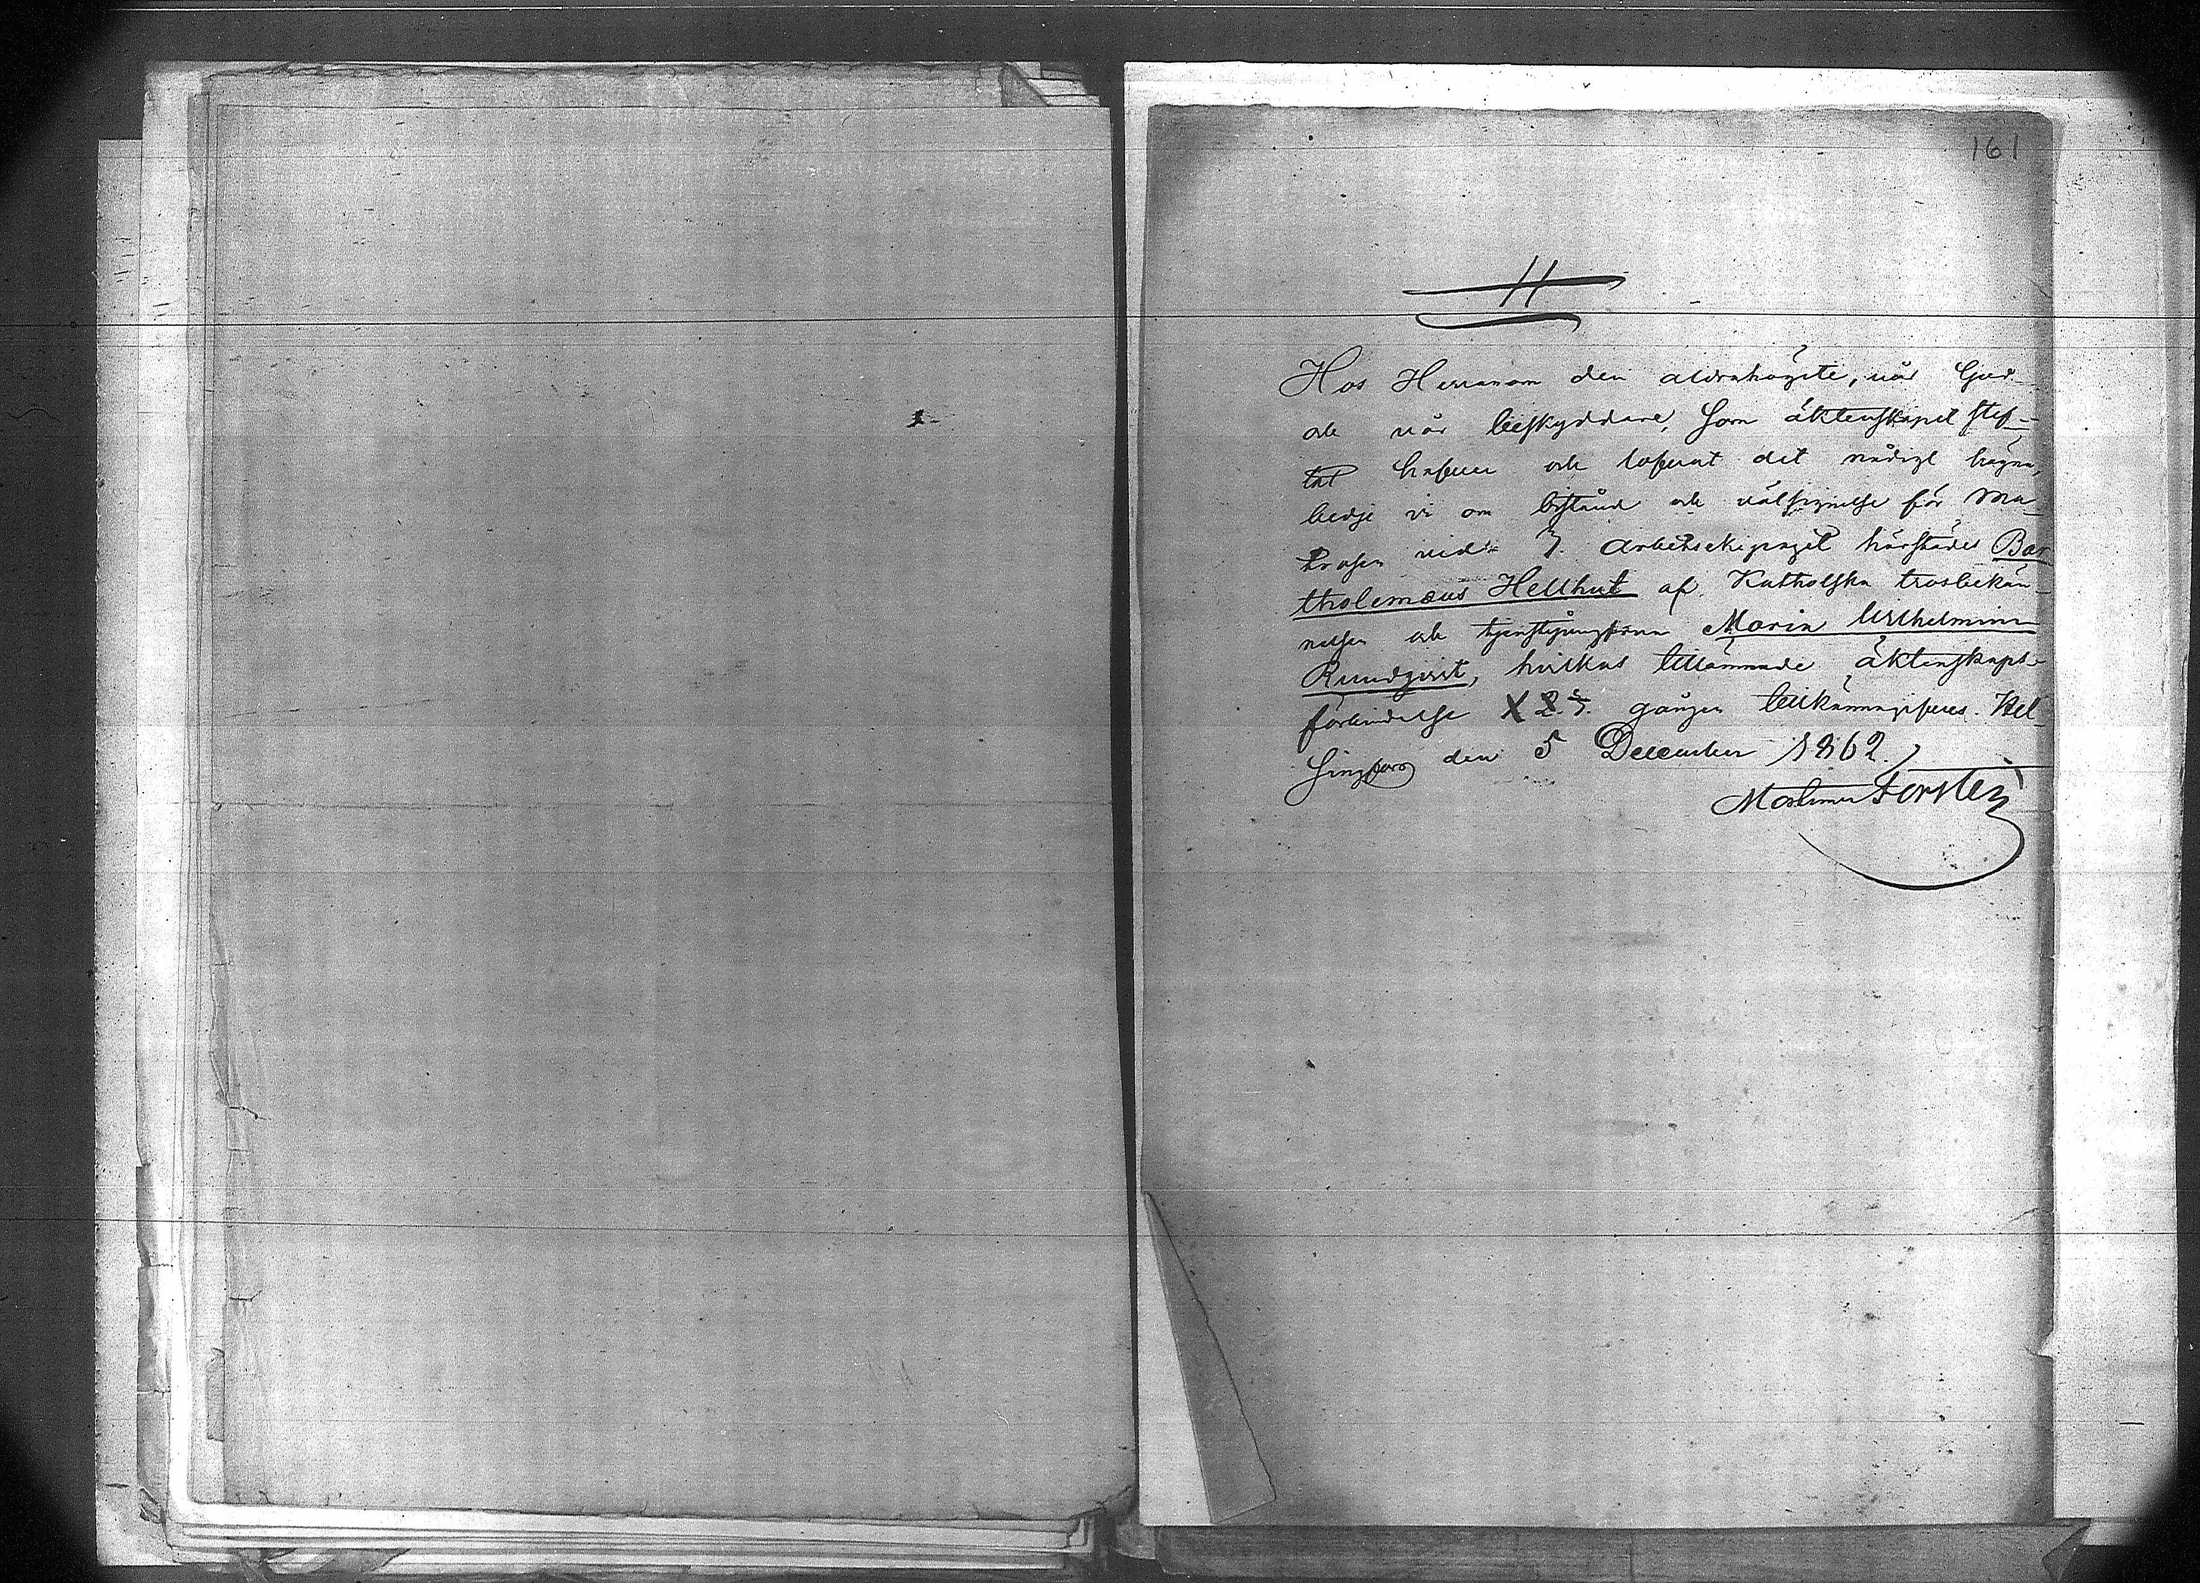 161
H
Hos Herranom den aldrahögste, vår Gud
och vår beskyddare, som äktenskapet stif-
tat hafver och lofvat det nådigt hägna,
bedje vi om bistånd och välsignelse för Ma-
trosen vid 3. Arbetsekipaget härstädes Bar
tholemæus Hellhut af Katholska trosbekän-
nelsen och tjenstejungfrun Maria Wilhelmina
Rundqvist, hvilkas tillämnade äktenskaps-
förbindelse X 2. 3. gången tillkännagifves. Hel-
singfors den 5 December 1862.
Forstén